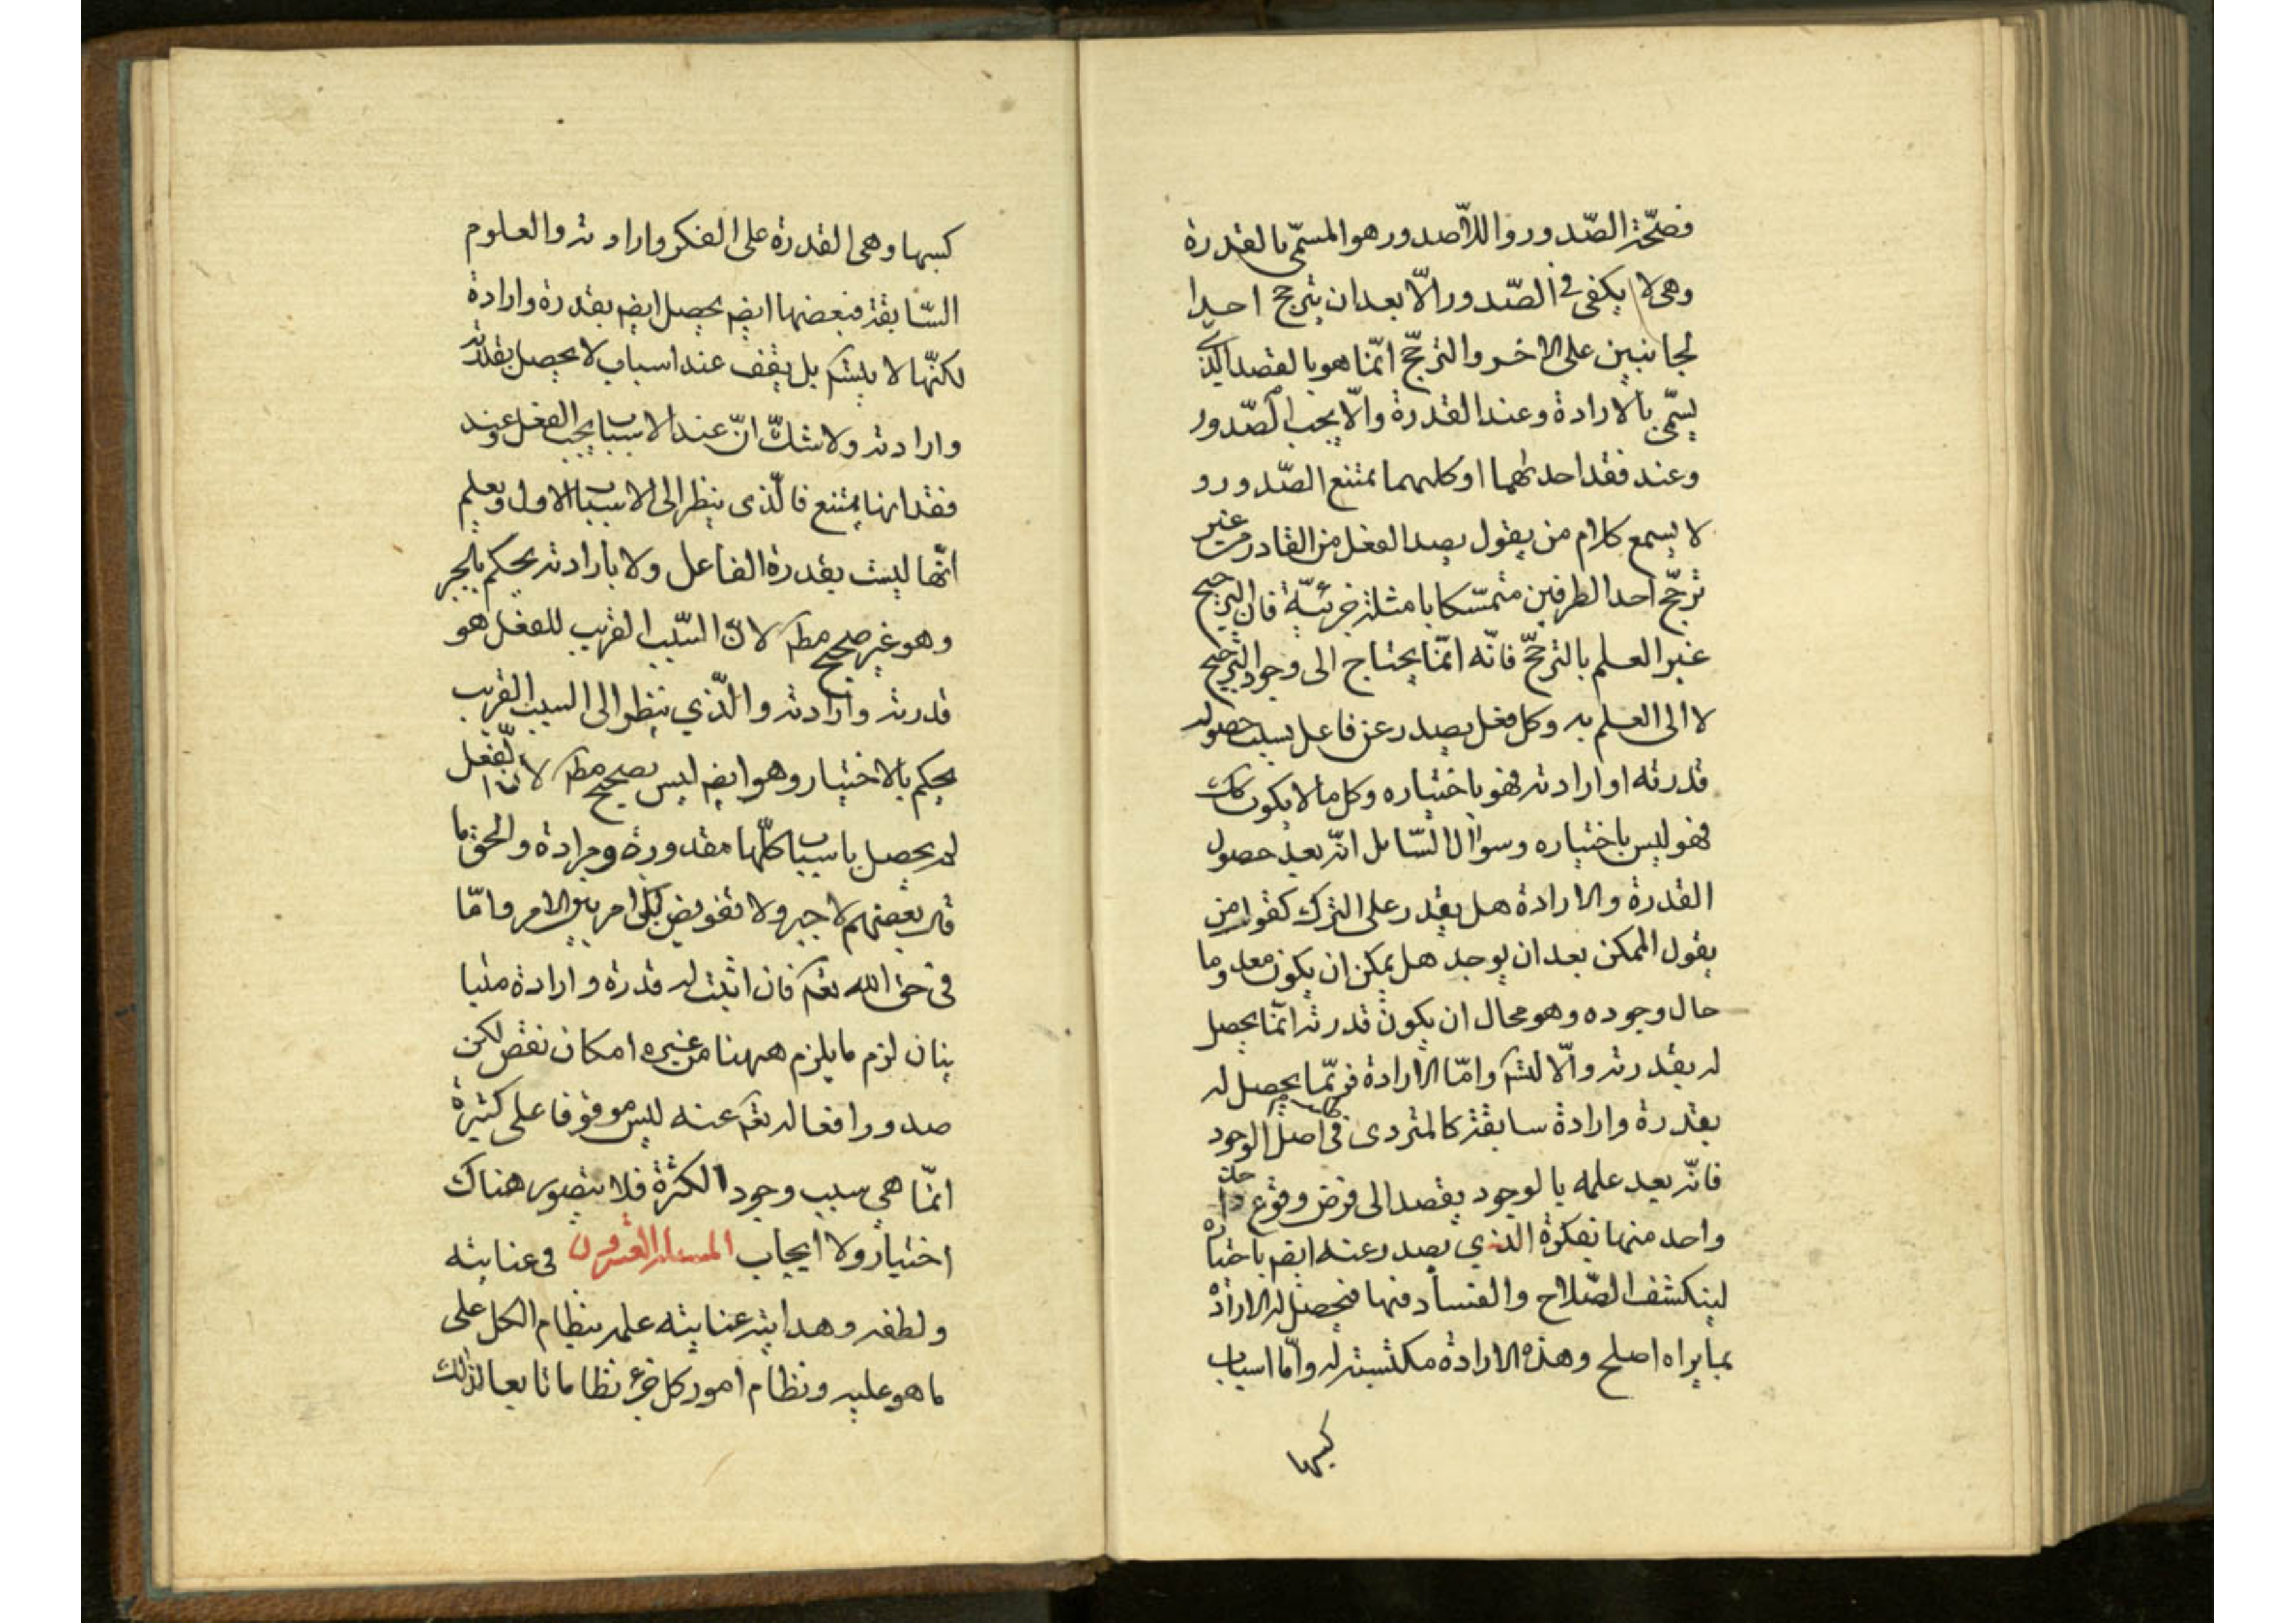 فصحّة الصّدور واللاّصدور هو المسمّى بالقدرة
وهى لا يكفى فى الصّدور الّا بعد ان يترجح احدا
لجانبين على الاخر والترجّح انّما هو بالقصد الذى
يسمّى بالارادة وعند القدرة والّا يجب الصّدور
وعند فقد احدلهما او كليهما يمتنع الصّدور و
لا يسمع كلام من يقول يصد الفعل من القادر من غير
ترجّح احد الطرفين متمسّكا بامثلة جزئيّة فان الترجيح
غير العلم بالترجّح فانّه انّما يحتاج الى وجود الترجيح
لا الى العلم به وكل فعل يصدر عن فاعل بسبب حصوله
قدرته او ارادته فهو باختياره وكل ما لا يكون كك
فهو ليس باختياره وسؤال السّايل انّه بعد حصول
القدرة والارادة هل يقدر على الترك كقول من
يقول الممكن بعد ان يوجد هل يمكن ان يكون معدوما
حال وجوده وهو محال ان يكون قدرته انّما يحصل
له بقدرته والّا لتسم وامّا الارادة فربّما يحصل له
بقدرة وارادة سابقة كالمتردى فى اصل الوجود
فانّه بعد علمه بالوجود يقصد الى فرض وقوع
واحد منها بفكرة الذي يصدر عنه ايضم باختياره
لينكشف الصّلاح والفساد فيها فيحصل له الارادة
بما يراه اصلح وهذه الارادة مكتسبته له وامّا اسباب
كسبها
كسبها وهى القدرة على الفكر وارادته والعلوم
السّابقة فبعضها ايضم يحصل ايضم بقدرة وارادة
لكنّها لا يتسم بل يقف عند اسباب لا يحصل بقدرته
وارادته ولا شكّ انّ عند الاسباب يجب الفعل وعند
فقدانها يمتنع فالّذى ينظر الى الاسباب الاول ويعلم
انّها ليست بقدرة الفاعل ولا بارادته يحكم بالجبر
وهو غير صحيح مطم لانّ السّبب القريب للفعل هو
قدرته وارادته والّذي ينظر الى السبب القريب
يحكم بالاختيار وهو ايضم ليس بصحيح مطم لان الفعل
لم يحصل باسباب كلّها مقدورة ومرادة والحق ما
قال بعضهم لا جبر ولا تفويض بل امر بين الامر وامّا
فى حق الله تعم فان اثبت له قدرة وارادة متبا
ينان لزم ما يلزم ههنا من غيره امكان نقض لكن
صدور افعاله تعم عنه ليس موقوفا على كثيرة
انّما هي سبب وجود الكثرة فلا يتصور هناك
اختيار ولا ايجاب المسئلة العشرون فى عنايته
ولطفه وهدايته عنايته علمه بنظام الكل على
ما هو عليه ونظام امور كل جزء نظاما تابعا لذلك